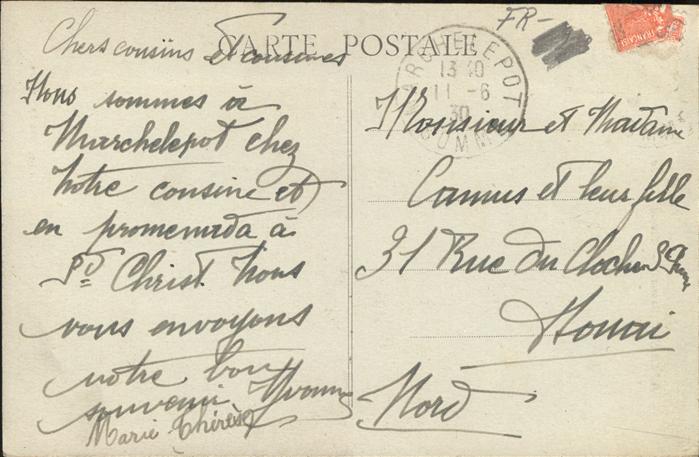 FR-
CARTE POSTALE
FRANÇAISE
MARCHELEPOT
13 40
11 -6
30
SOMME
Chers cousins et cousines
Nous sommes à
Marchelepot chez
notre cousine et
en promenada à
St Christ. Nous
vous envoyons
notre bon
souvenir Yvonne
Marie Thérèse
Monsieur et Madame
Camus et leur fille
31 Rue du Clocher St Pierre
Douai
Nord